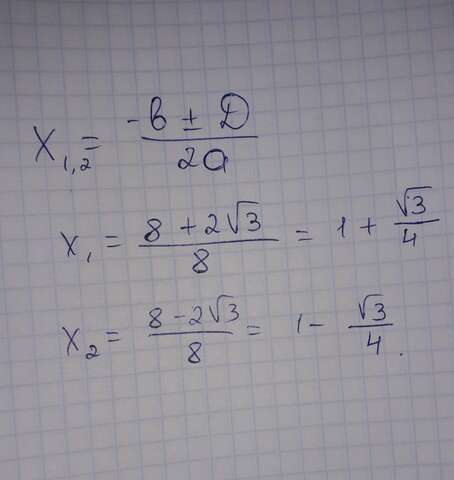 X₁,₂ = (-b ± D)/(2a)
x₁ = (8 + 2√3)/8 = 1 + √3/4
x₂ = (8 - 2√3)/8 = 1 - √3/4.